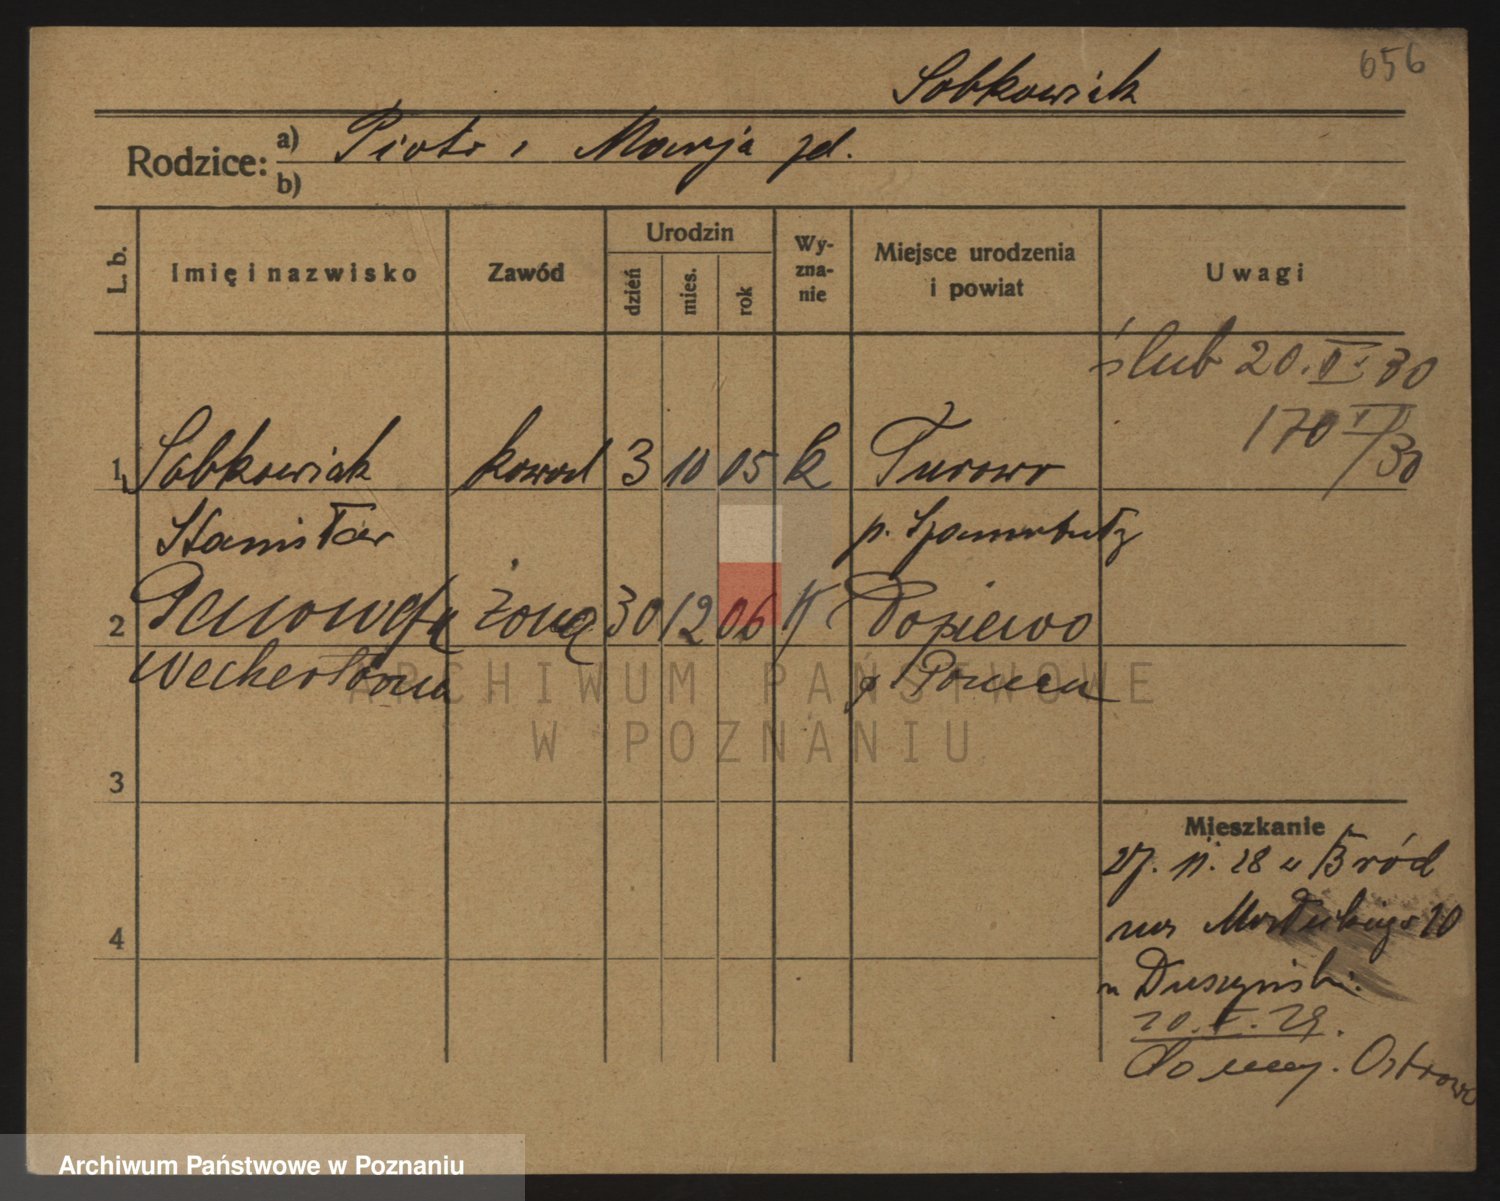 656
Sobkowiak
Rodzice: a) Piotr i Marja zd.
b)
L. b. Imię i nazwisko Zawód Urodzin dzień mies. rok Wyznanie Miejsce urodzenia i powiat Uwagi
ślub 20.V.30
170 V/30
1 Sobkowiak kowal 3 10 05 k Turowo
Stanisław p. Szamotuły
2 Genowefa żona 30 12 06 k Dopiewo
p.
ARCHIWUM PAŃSTWOWE
W POZNANIU
3
Mieszkanie
27. 11. 28 w Bród
4
10
Duszyński.
20. V. 29.
Ostrowo
Archiwum Państwowe w Poznaniu